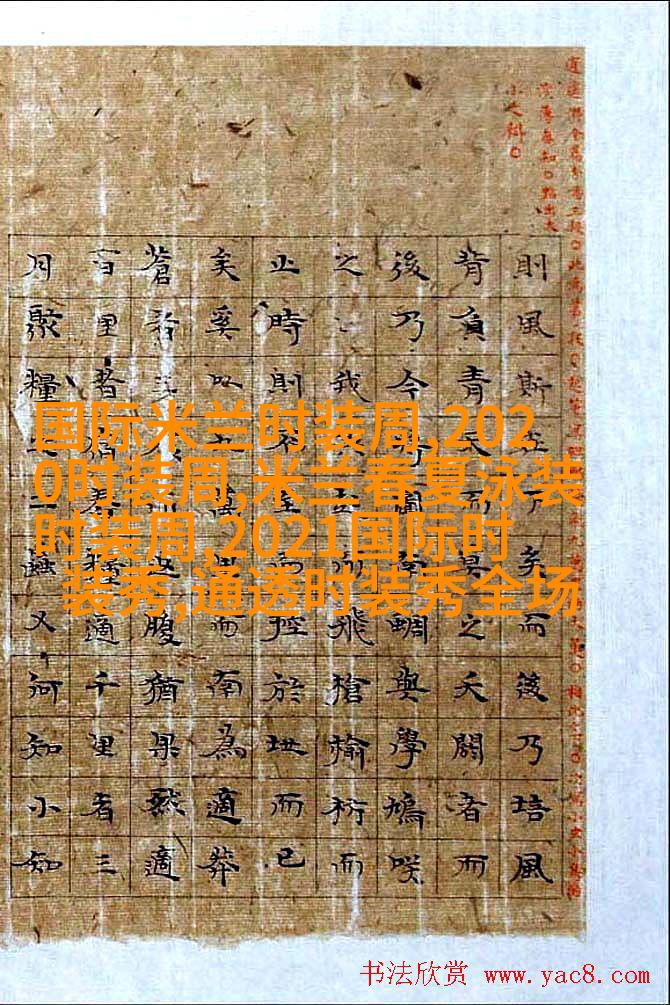 则風斯在下矣而後乃培風
背負青天而莫之夭閼者而
後乃今將圖南蜩與學鳩咲
之我而飛槍榆枋而
止時則不至而控於地而已
矣奚以九萬里而南為適莽
蒼者三反腹猶果然適
百里者宿舂糧適千里者三
月聚糧之二蟲又何知小知
国际米兰时装周,202
0时装周,米兰春夏泳装
时装周,2021国际时
装秀,通透时装秀全场
书法欣赏 www.yac8.com